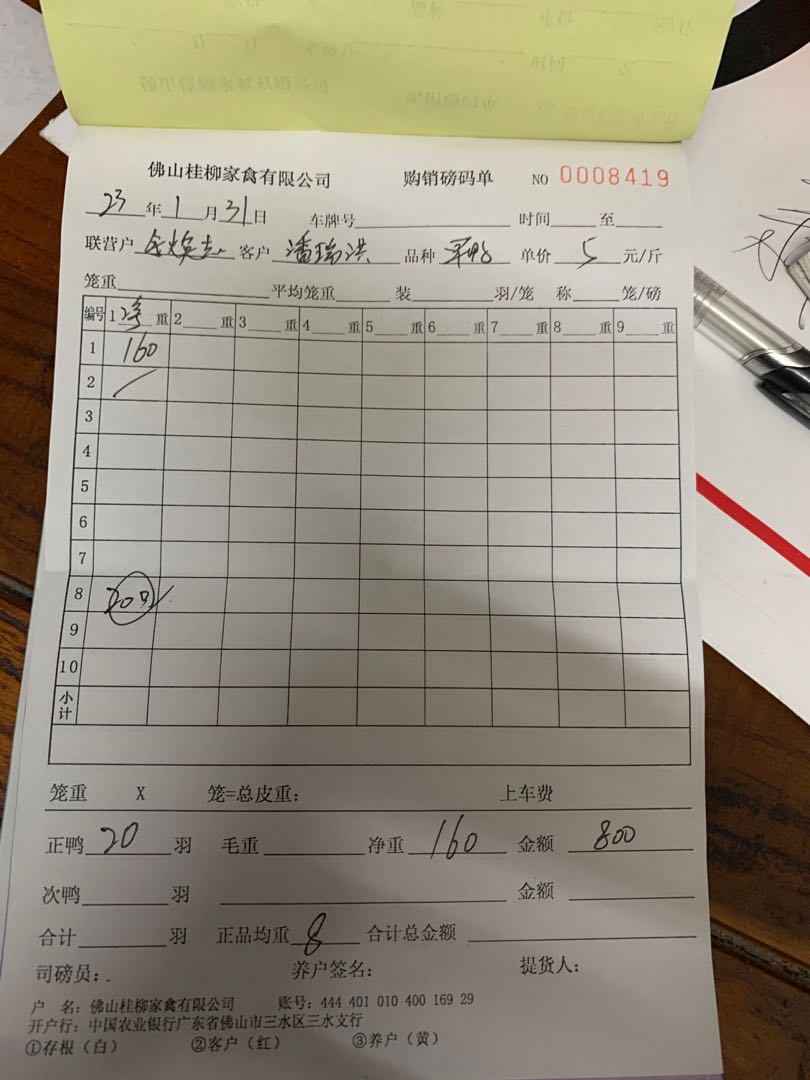 佛山桂柳家禽有限公司 购销磅码单 NO 0008419
23年1月31日 车牌号 时间 至
联营户 客户 潘瑞洪 品种 单价 5 元/斤
笼重 平均笼重 装 羽/笼 称 笼/磅
编号 1 净 重 2 重 3 重 4 重 5 重 6 重 7 重 8 重 9 重
1 160
2
3
4
5
6
7
8 20只
9
10
小计
笼重 X 笼=总皮重: 上车费
正鸭 20 羽 毛重 净重 160 金额 800
次鸭 羽 金额
合计 羽 正品均重 8 合计总金额
司磅员: 养户签名: 提货人:
户 名: 佛山桂柳家禽有限公司 账号: 444 401 010 400 169 29
开户行: 中国农业银行广东省佛山市三水区三水支行
①存根(白) ②客户(红) ③养户(黄)